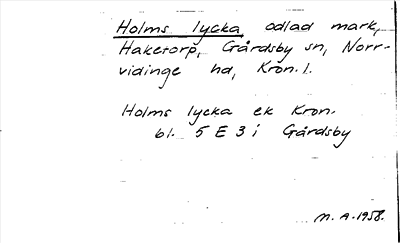 Holms lycka, odlad mark,
Haketorp, Gårdsby sn, Norr-
vidinge hd, Kron. l.
Holms lycka ek Kron.
bl. 5 E 3 i Gårdsby
M. A. 1958.